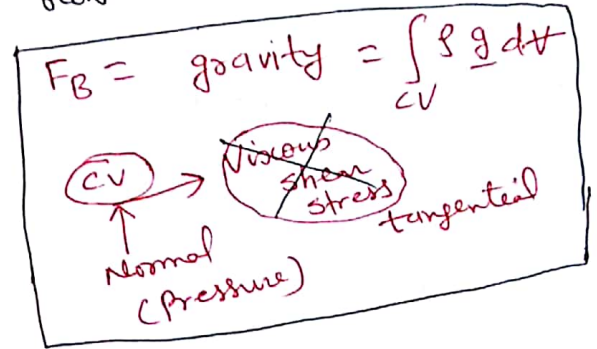 F_B = gravity = ∫_CV ρ g dV
CV
Viscous
shear
stress
tangential
Normal
(Pressure)